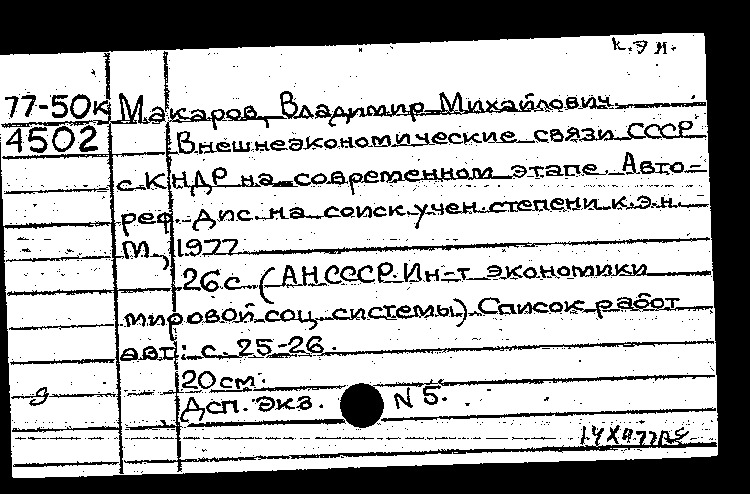 к.э.н.
77-50к Макаров, Владимир Михайлович.
4502 Внешнеэкономические связи СССР
с КНДР на современном этапе. Авто-
реф. дис. на соиск. учен. степени к.э.н.
М., 1977
26 с. (АН СССР. Ин-т экономики
мировой соц. системы). Список работ
авт.: с. 25-26.
20 см.
Дсп. Экз. N 5.